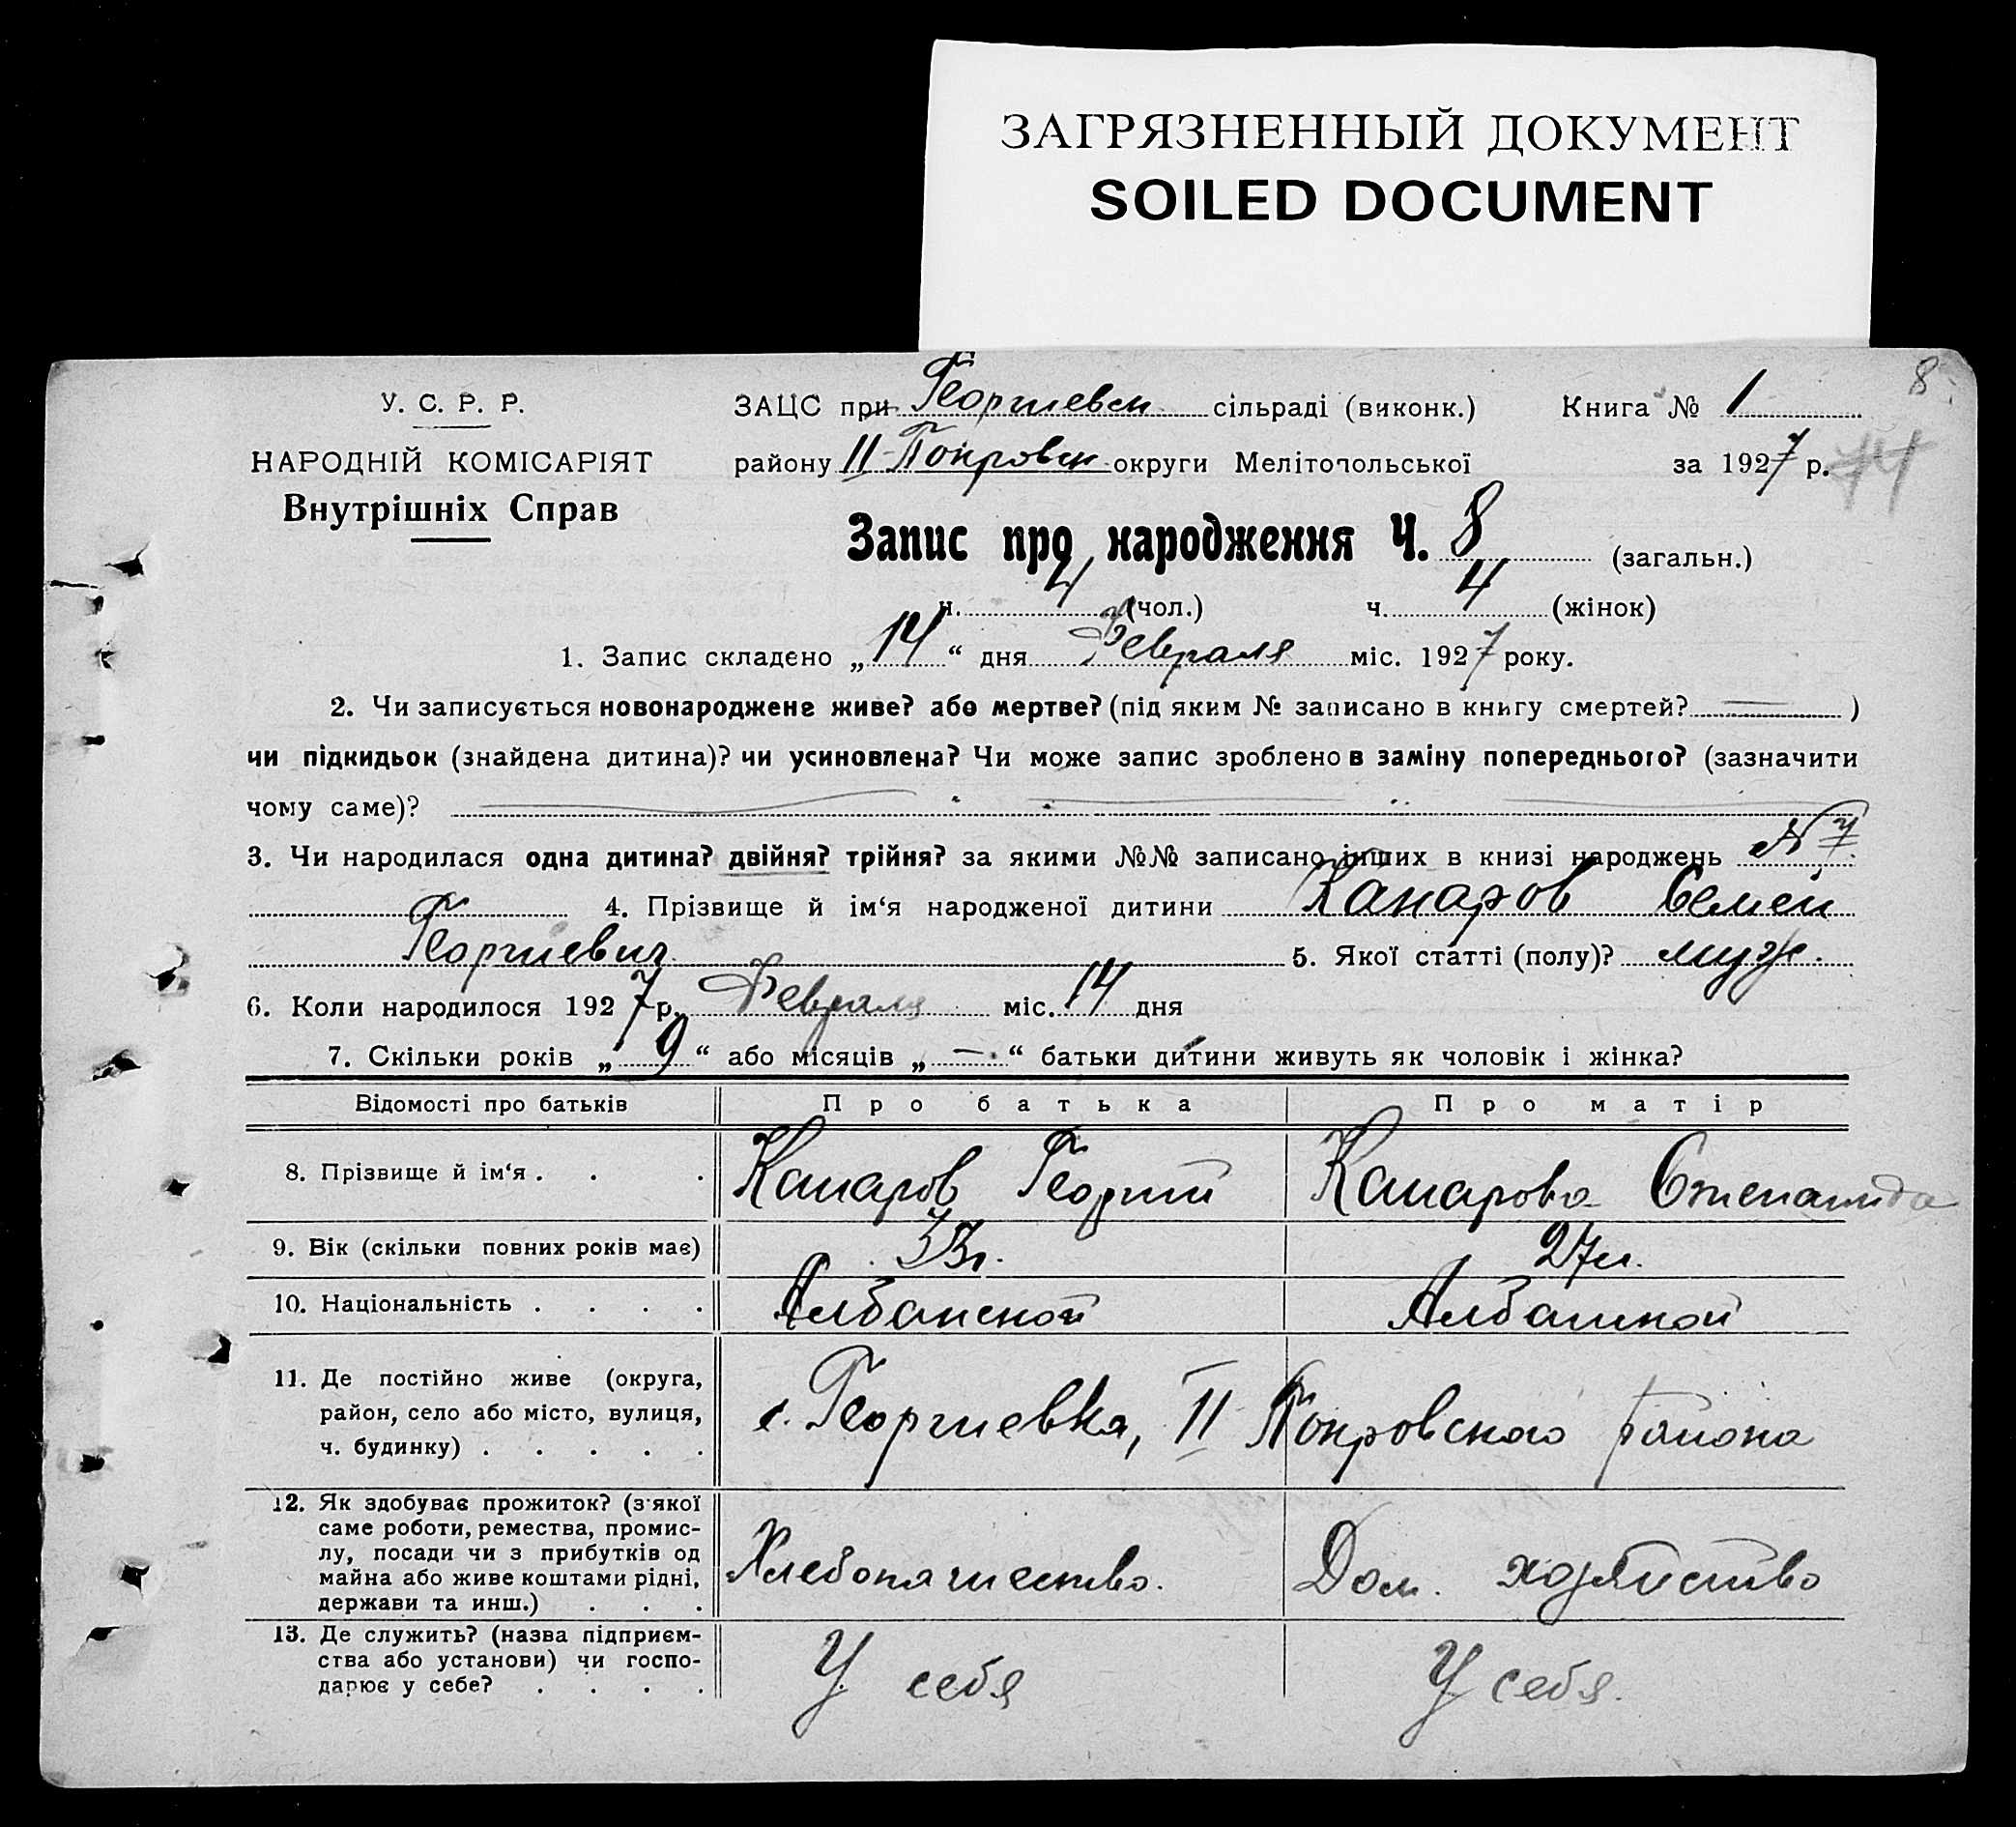 ЗАГРЯЗНЕННЫЙ ДОКУМЕНТ
SOILED DOCUMENT
8.
У. С. Р. Р.
НАРОДНІЙ КОМІСАРІЯТ
Внутрішніх Справ
ЗАЦС при Георгиевск сільраді (виконк.) Книга № 1
району II-Покровск округи Мелітопольської за 1927 р.
Запис про народження Ч. 8 (загальн.)
ч. 4 (чол.) ч. 4 (жінок)
1. Запис складено „14“ дня Февраля міс. 1927 року.
2. Чи записується новонароджене живе? або мертве? (під яким № записано в книгу смертей? — )
чи підкидьок (знайдена дитина)? чи усиновлена? Чи може запис зроблено в заміну попереднього? (зазначити
чому саме)?
3. Чи народилася одна дитина? двійня? трійня? за якими №№ записано інших в книзі народжень № 7.
4. Прізвище й ім‘я народженої дитини Канаров Семен
Георгиевич 5. Якої статті (полу)? муж.
6. Коли народилося 1927 р. Февраля міс. 14 дня
7. Скільки років „9“ або місяців „—“ батьки дитини живуть як чоловік і жінка?
Відомості про батьків Про батька Про матір
8. Прізвище й ім‘я . . . Канаров Георгий Канарова Степанида
9. Вік (скільки повних років має) 33 г. 27 л.
10. Національність . . . . Албанской Албанской
11. Де постійно живе (округа,
район, село або місто, вулиця,
ч. будинку) . . . . .
с. Георгиевка, II Покровского района
12. Як здобуває прожиток? (з'якої
саме роботи, ремества, промис-
лу, посади чи з прибутків од
майна або живе коштами рідні,
держави та инш.) . . .
Хлебопашество. Дом. хозяйство
13. Де служить? (назва підприєм-
ства або установи) чи госпо-
дарює у себе? . . . .
У себя У себя.